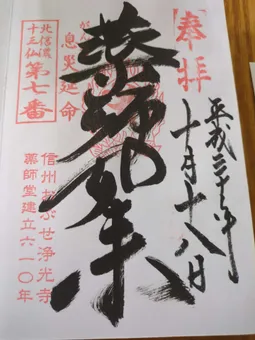 奉拝
平成三十年
十月十八日
薬師如来
息災延命
北信濃
十三仏
第七番
信州おぶせ浄光寺
薬師堂建立六一〇年